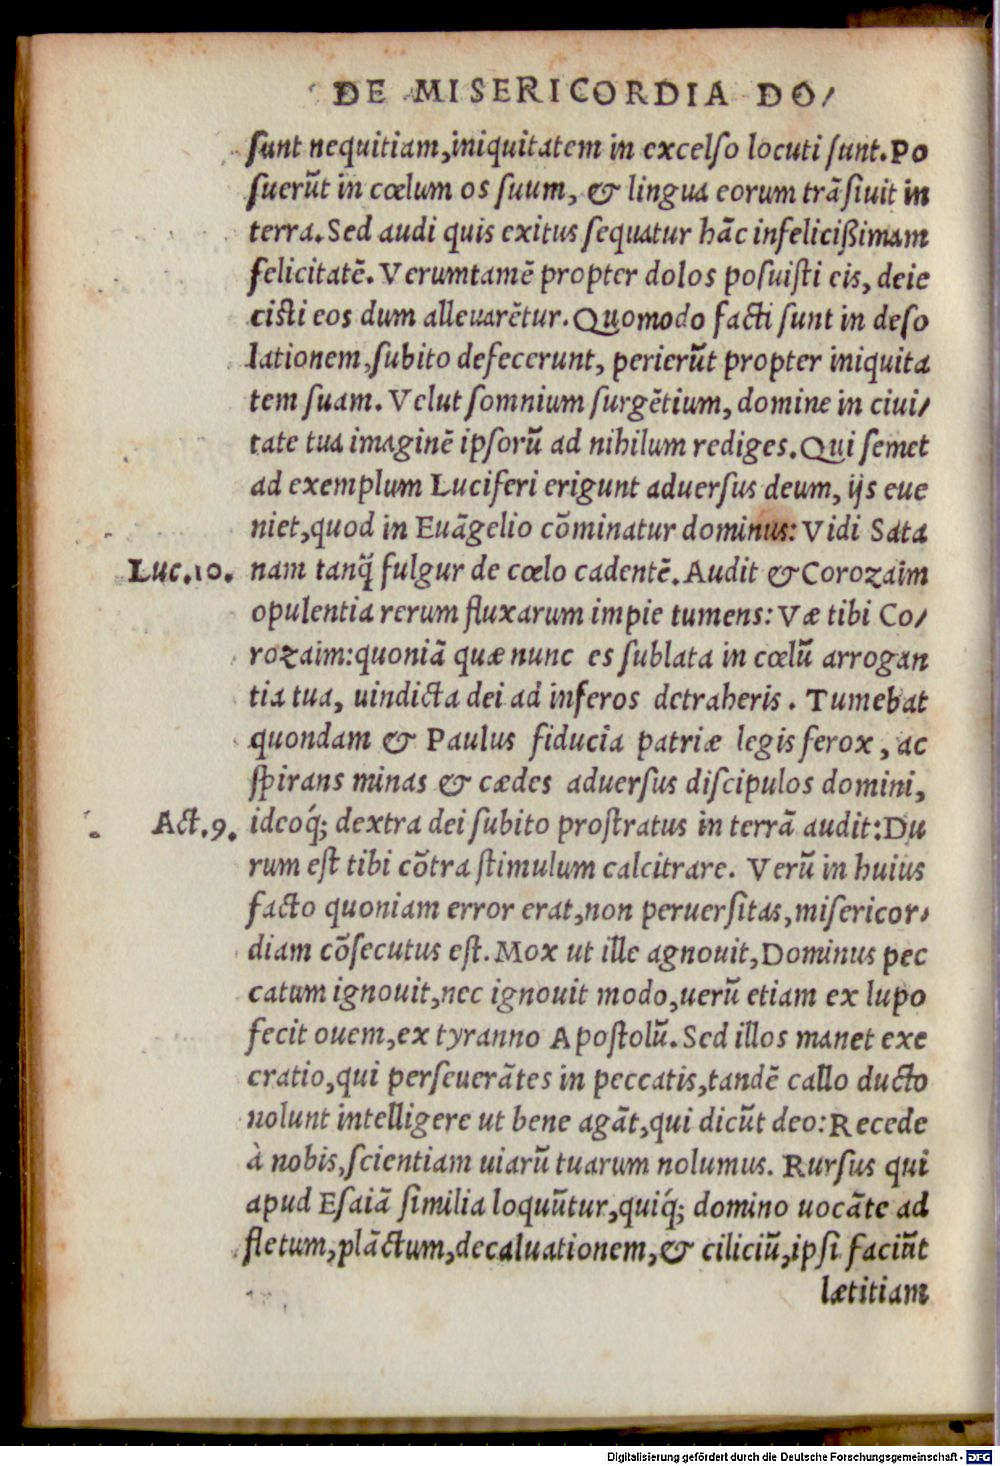 DE MISERICORDIA DO/
ſunt nequitiam,iniquitatem in excelſo locuti ſunt.Po
ſuerũt in cœlum os suum, & lingua eorum trãſiuit in
terra.Sed audi quis exitus ſequatur hãc infelicißimam
felicitatẽ. Verumtamẽ propter dolos poſuiſti eis, deie
ciſti eos dum alleuarẽtur.Quomodo facti ſunt in deſo
lationem,ſubito defecerunt, perierũt propter iniquita
tem ſuam. Velut ſomnium ſurgẽtium, domine in ciui/
tate tua imaginẽ ipſorũ ad nihilum rediges.Qui ſemet
ad exemplum Luciferi erigunt aduerſus deum, ijs eue
niet,quod in Euãgelio cõminatur dominus: Vidi Sata
Luc.10. nam tanq̃ fulgur de cœlo cadentẽ.Audit & Corozaim
opulentia rerum fluxarum impie tumens: Væ tibi Co/
rozaim:quoniã quæ nunc es ſublata in cœlũ arrogan
tia tua, uindicta dei ad inferos detraheris. Tumebat
quondam & Paulus fiducia patriæ legis ferox, ac
ſpirans minas & cædes aduerſus diſcipulos domini,
Act.9. ideoq́; dextra dei ſubito proſtratus in terrã audit:Du
rum eſt tibi cõtra ſtimulum calcitrare. Verũ in huius
facto quoniam error erat,non peruerſitas,miſericor/
diam cõſecutus eſt.Mox ut ille agnouit,Dominus pec
catum ignouit,nec ignouit modo,uerũ etiam ex lupo
fecit ouem,ex tyranno Apoſtolũ.Sed illos manet exe
cratio,qui perſeuerãtes in peccatis,tandẽ callo ducto
nolunt intelligere ut bene agãt,qui dicũt deo:Recede
à nobis,ſcientiam uiarũ tuarum nolumus. Rurſus qui
apud Eſaiã ſimilia loquũtur,quiq́; domino uocãte ad
fletum,plãctum,decaluationem,& ciliciũ,ipſi faciũt
lætitiam
Digitalisierung gefördert durch die Deutsche Forschungsgemeinschaft - DFG